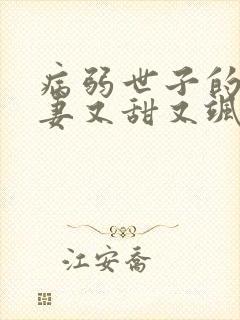 病弱世子的
妻又甜又飒
江安乔